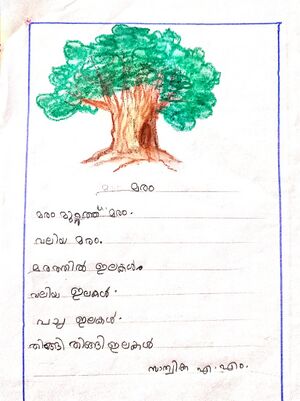 മരം
മരം മുറ്റത്ത് മരം.
വലിയ മരം.
മരത്തിൽ ഇലകൾ.
വലിയ ഇലകൾ.
പച്ച ഇലകൾ.
തിങ്ങി തിങ്ങി ഇലകൾ
സാന്വിക എ.എം.